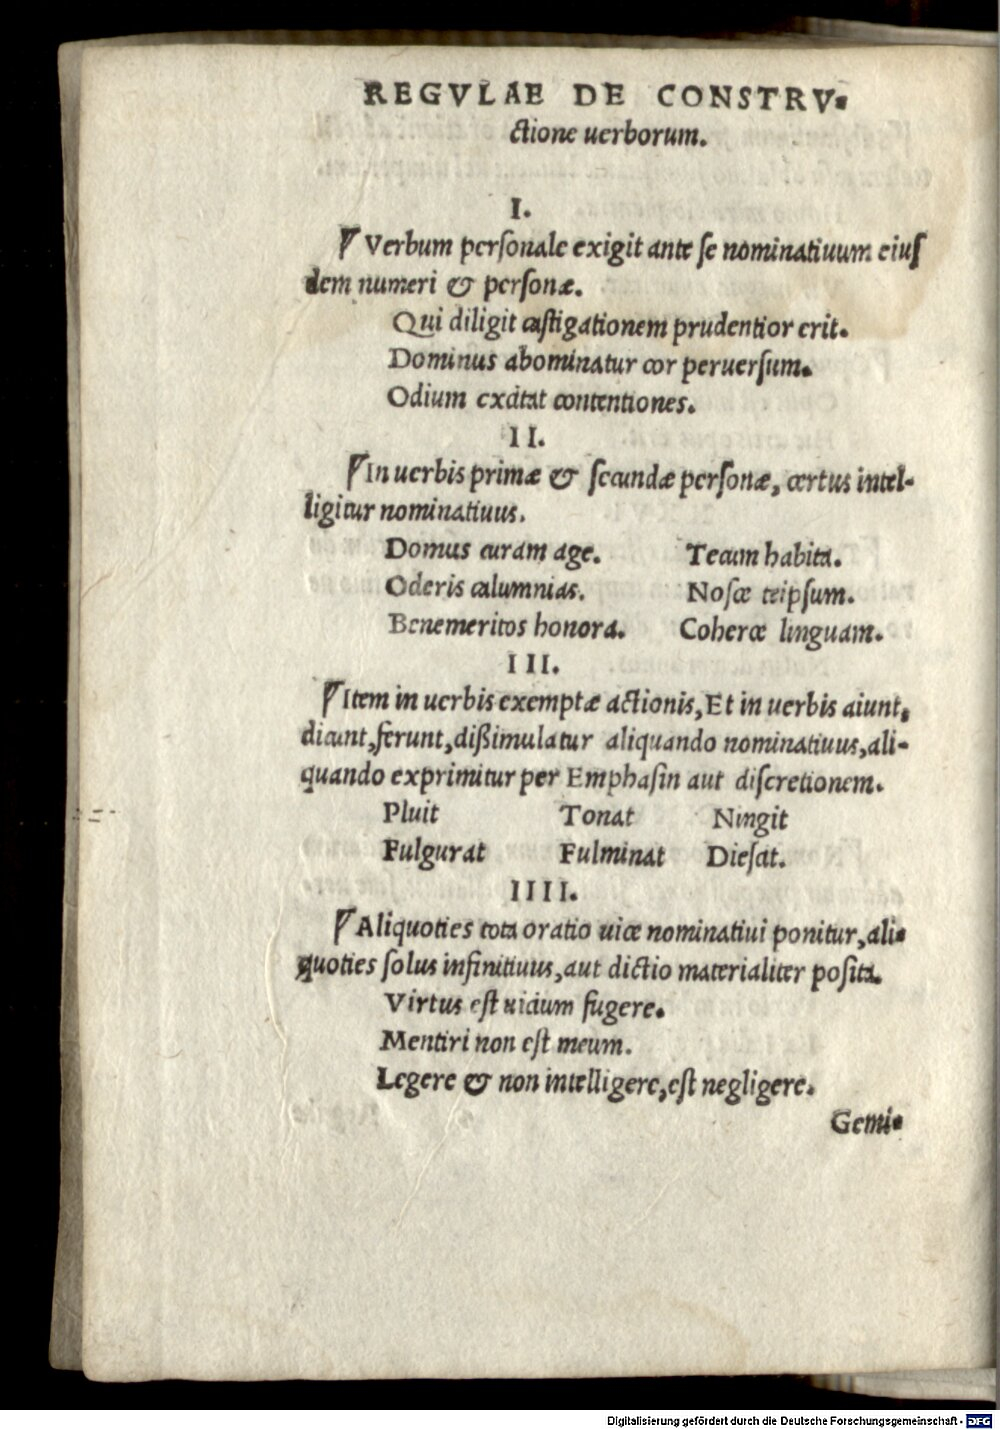 REGVLAE DE CONSTRV-
ctione uerborum.
I.
¶ Verbum perſonale exigit ante ſe nominatiuum eiuſ
dem numeri & perſonæ.
Qui diligit caſtigationem prudentior erit.
Dominus abominatur cor peruerſum.
Odium excitat contentiones.
II.
¶ In uerbis primæ & ſecundæ perſonæ, certus intel-
ligitur nominatiuus.
Domus curam age. Tecum habita.
Oderis calumnias. Noſce teipſum.
Benemeritos honora. Coherce linguam.
III.
¶ Item in uerbis exemptæ actionis, Et in uerbis aiunt,
dicunt, ferunt, dißimulatur aliquando nominatiuus, ali-
quando exprimitur per Emphaſin aut diſcretionem.
Pluit Tonat Ningit
Fulgurat Fulminat Dieſcit.
IIII.
¶ Aliquoties tota oratio uice nominatiui ponitur, ali-
quoties ſolus infinitiuus, aut dictio materialiter poſita.
Virtus eſt uicium fugere.
Mentiri non eſt meum.
Legere & non intelligere, eſt negligere.
Gemi-
Digitalisierung gefördert durch die Deutsche Forschungsgemeinschaft - DFG